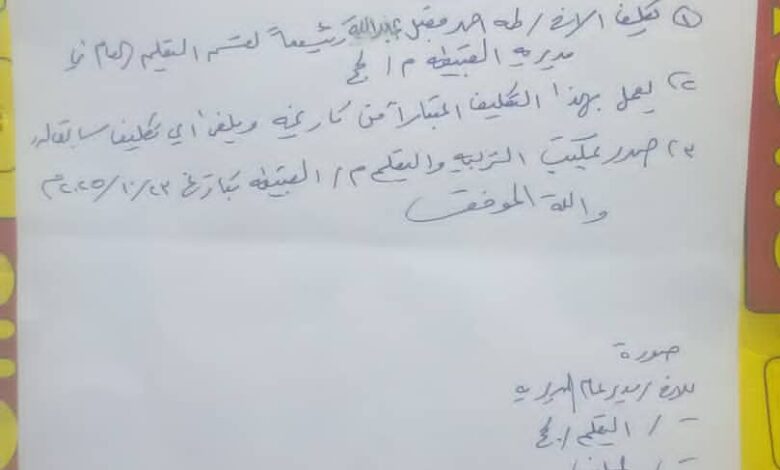 ١) تكليف الاخ / طه احمد مقبل عبدالله رئيسا لقسم التعليم العام في
مديرية القبيطه م / لحج
٢) يعمل بهذا التكليف اعتبارا من تاريخه ويلغى أي تكليف سابق له
٣) صدر بمكتب التربيه والتعليم م / القبيطه بتاريخ ٢٣/١٠/٢٠٢٥م
والله الموفق
صورة
للاخ / مدير عام المديريه
– / التعليم / لحج